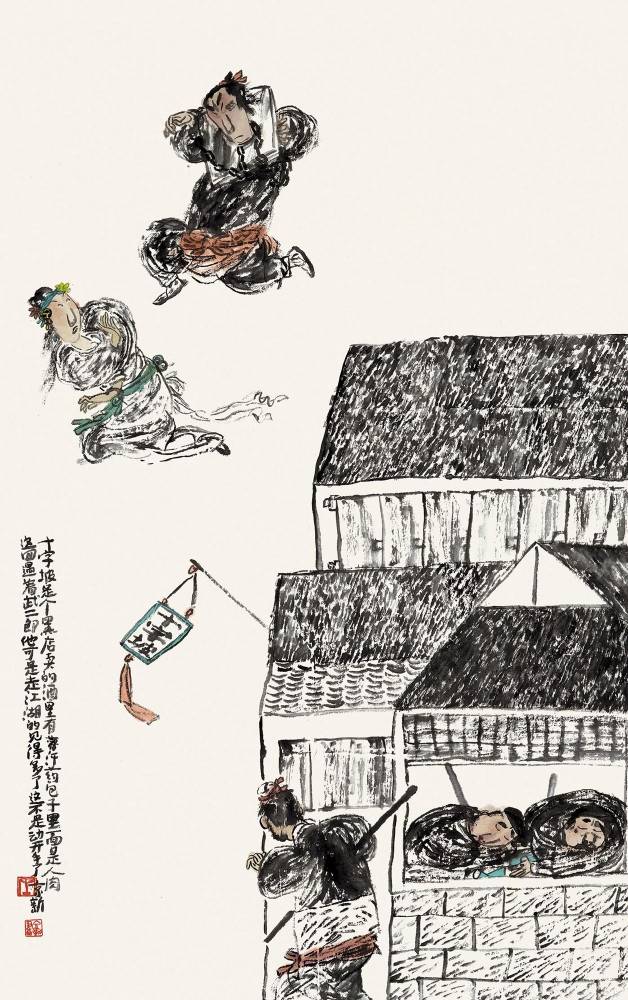 十字坡
十字坡是个黑店卖的酒里有蒙汗药包子里面是人肉
这回遇着武二郎他可是走江湖的见得多了这不是动开手了